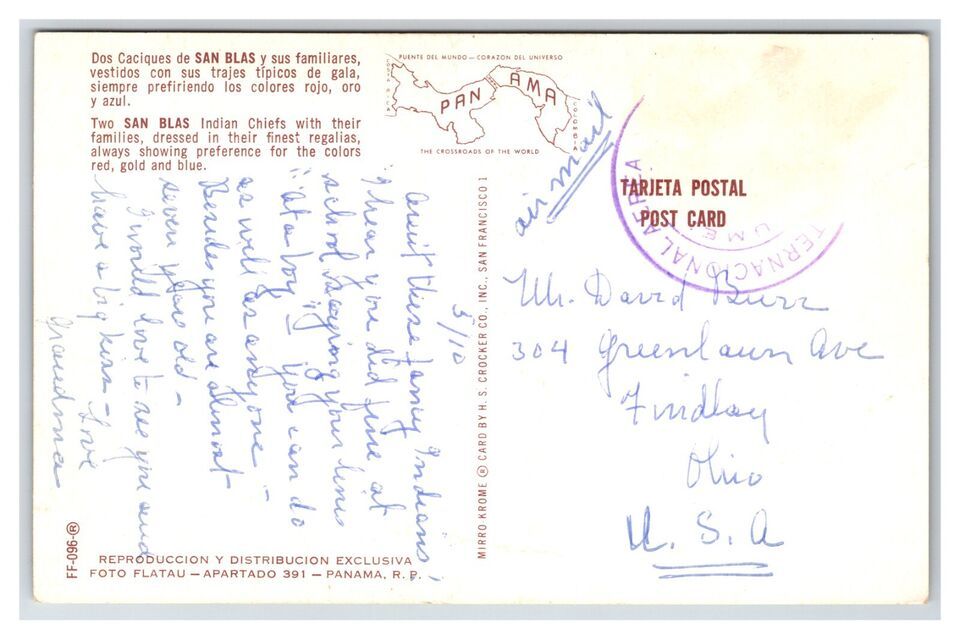 Dos Caciques de SAN BLAS y sus familiares,
vestidos con sus trajes típicos de gala,
siempre prefiriendo los colores rojo, oro
y azul.
Two SAN BLAS Indian Chiefs with their
families, dressed in their finest regalias,
always showing preference for the colors
red, gold and blue.
PUENTE DEL MUNDO — CORAZON DEL UNIVERSO
COSTA RICA
PANAMA
COLOMBIA
THE CROSSROADS OF THE WORLD
air mail
TARJETA POSTAL
POST CARD
TERNACIONAL AEREA
UME
5/10
these fancy Indians!
I hear you did fine at
school saying your lines
"at a boy" you can do
as well as anyone -
Besides you are almost
seven years old -
I would love to see you and
have a big kiss - Love
Grandma
Mr. David Burr
304 Greenlawn Ave
Findlay
Ohio
U.S.A
MIRRO KROME ® CARD BY H. S. CROCKER CO., INC., SAN FRANCISCO 1
FF-096-®
REPRODUCCION Y DISTRIBUCION EXCLUSIVA
FOTO FLATAU — APARTADO 391 — PANAMA, R. P.